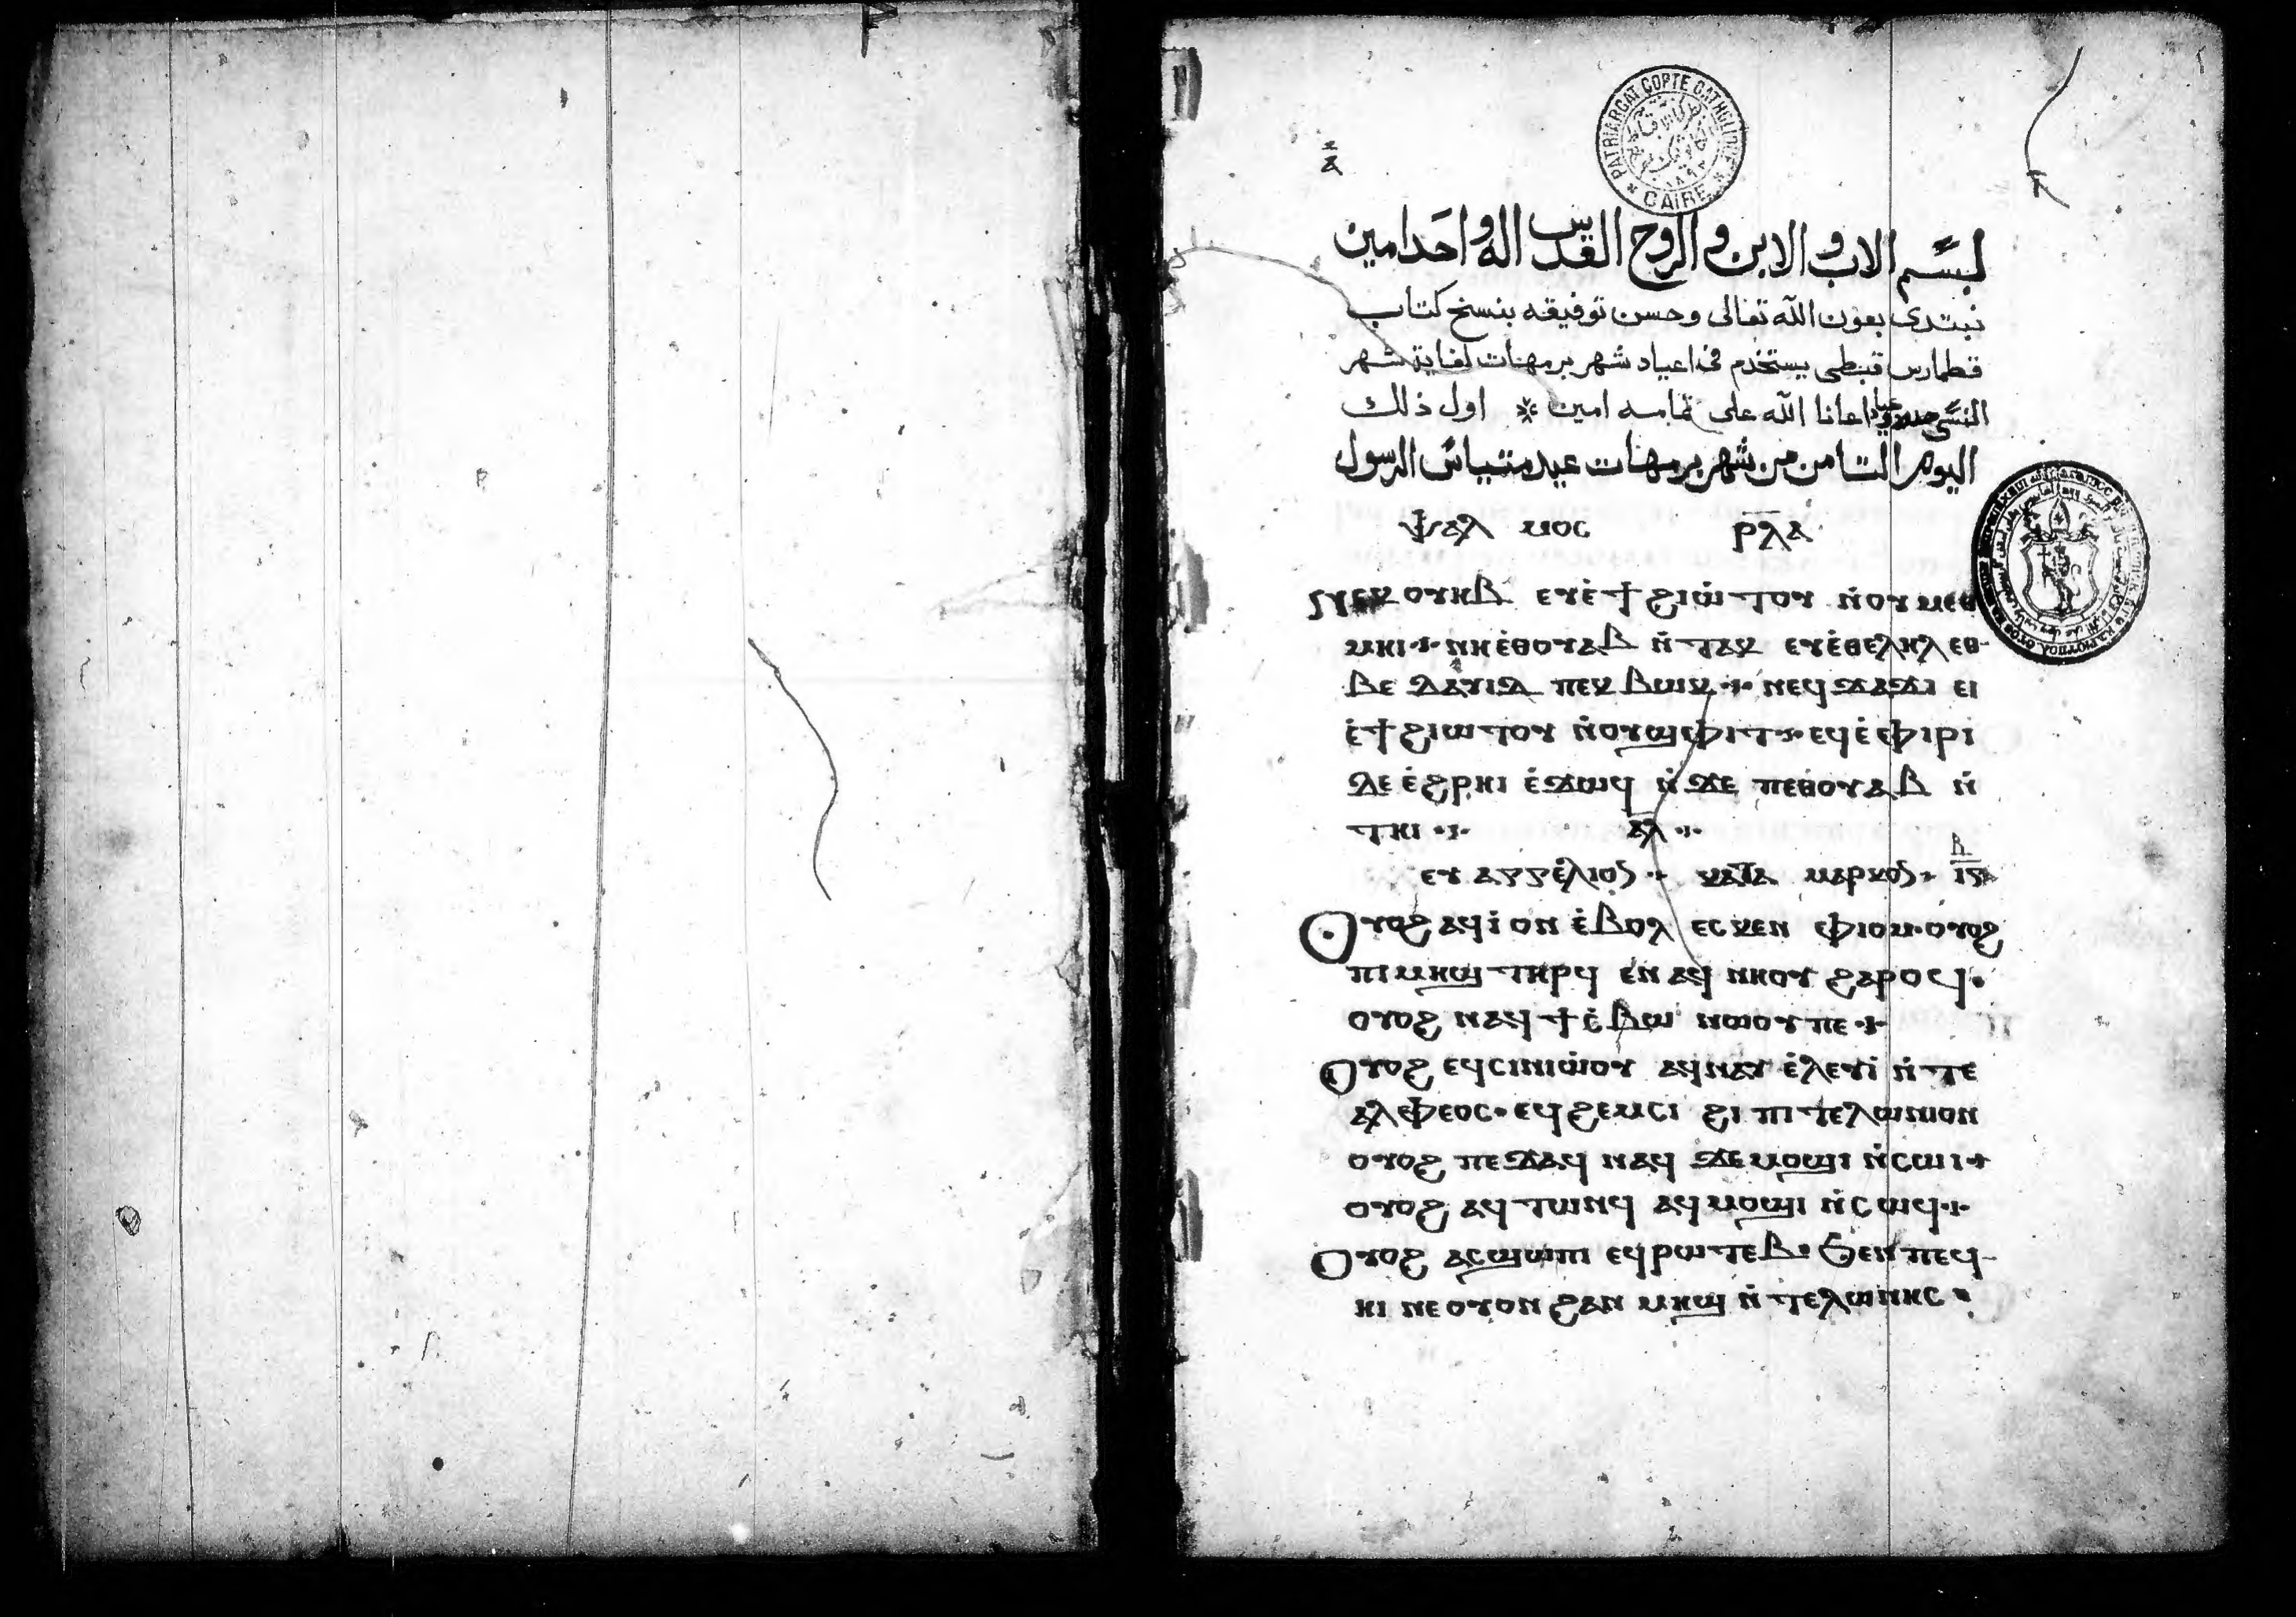 PATRIARCAT COPTE CATHOLIQUE
CAIRE
ⲁ
بسم الاب والابن والروح القدس اله واحد امين
نبتدى بعون الله تعالى وحسن توفيقه بنسخ كتاب
قطمارس قبطى يستخدم فى اعياد شهر برمهات لغاية شهر
النسى اعانا الله على تمامه امين * اول ذلك
اليوم التامن من شهر برمهات عيد متياس الرسول
ⲯⲁⲗ ⲙⲟⲥ ⲣⲗⲁ
ⲟⲩⲏⲃ ⲉⲩⲉ̇ϯϩⲓⲱ̇ⲧⲟⲩ ⲛ̇ⲟⲩⲙⲉⲑ
ⲙⲏⲓ ⲛⲏⲉ̇ⲑⲟⲩⲁⲃ ⲛ̇ⲧⲁⲕ ⲉⲩⲉ̇ⲑⲉⲗⲏⲗ ⲉⲑ
ⲃⲉ ⲇⲁⲩⲓⲇ ⲡⲉⲕ ⲃⲱⲕ ⲛⲉϥϫⲁϫⲓ ⲉⲓ
ⲉ̇ϯϩⲓⲱⲧⲟⲩ ⲛ̇ⲟⲩϣⲫⲓⲧ ⲉϥⲉ̇ⲫⲓⲣⲓ
ⲇⲉ ⲉ̇ϩⲣⲏⲓ ⲉ̇ϫⲱϥ ⲛ̇ϫⲉ ⲡⲉⲑⲟⲩⲁⲃ ⲛ̇
ⲧⲏⲓ ⲁⲗ
ⲉⲩⲁⲅⲅⲉ̇ⲗⲓⲟⲥ ⲕⲁⲧⲁ ⲙⲁⲣⲕⲟⲥ ⲃ ⲓⲅ
Ⲟⲩⲟϩ ⲁϥⲓ̇ ⲟⲛ ⲉ̇ⲃⲟⲗ ⲉⲥⲕⲉⲛ ⲫⲓⲟⲙ ⲟⲩⲟϩ
ⲡⲓⲙⲏϣ ⲧⲏⲣϥ ⲉⲛⲁϥ ⲛⲏⲟⲩ ϩⲁⲣⲟϥ
ⲟⲩⲟϩ ⲛⲁϥϯⲉ̇ⲃⲱ ⲛⲱⲟⲩ ⲡⲉ
Ⲟⲩⲟϩ ⲉϥⲥⲓⲛⲓⲱ̇ⲟⲩ ⲁϥⲛⲁⲩ ⲉ̇ⲗⲉⲩⲓ̇ ⲛ̇ⲧⲉ
ⲁⲗⲫⲉⲟⲥ ⲉϥϩⲉⲙⲥⲓ ϩⲓ ⲡⲓⲧⲉⲗⲱⲛⲓⲟⲛ
ⲟⲩⲟϩ ⲡⲉϫⲁϥ ⲛⲁϥ ϫⲉ ⲙⲟϣⲓ ⲛ̇ⲥⲱⲓ
ⲟⲩⲟϩ ⲁϥⲧⲱⲛϥ ⲁϥⲙⲟϣⲓ ⲛ̇ⲥⲱϥ
Ⲟⲩⲟϩ ⲁⲥϣⲱⲡⲓ ⲉϥⲣⲱⲧⲉⲃ ϧⲉⲛ ⲡⲉϥ
ⲏⲓ ⲛⲉ ⲟⲩⲟⲛ ϩⲁⲛ ⲙⲏϣ ⲛ̇ⲧⲉⲗⲱⲛⲏⲥ